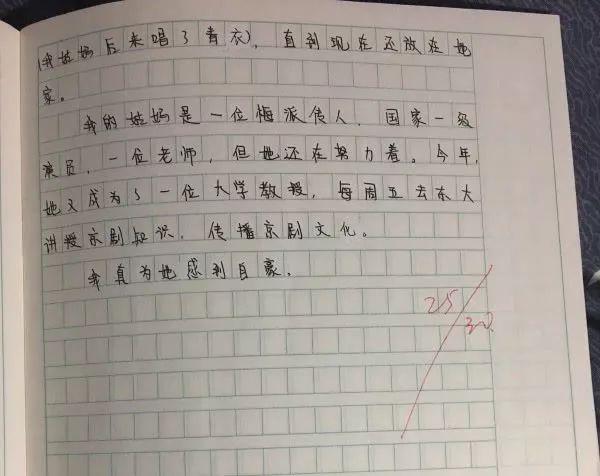 (我姑妈后来唱了青衣)，直到现在还放在她
家。
我的姑妈是一位梅派传人，国家一级
演员，一位老师，但她还在努力着。今年，
她又成为了一位大学教授，每周五去东大
讲授京剧知识，传播京剧文化。
我真为她感到自豪。
25/30